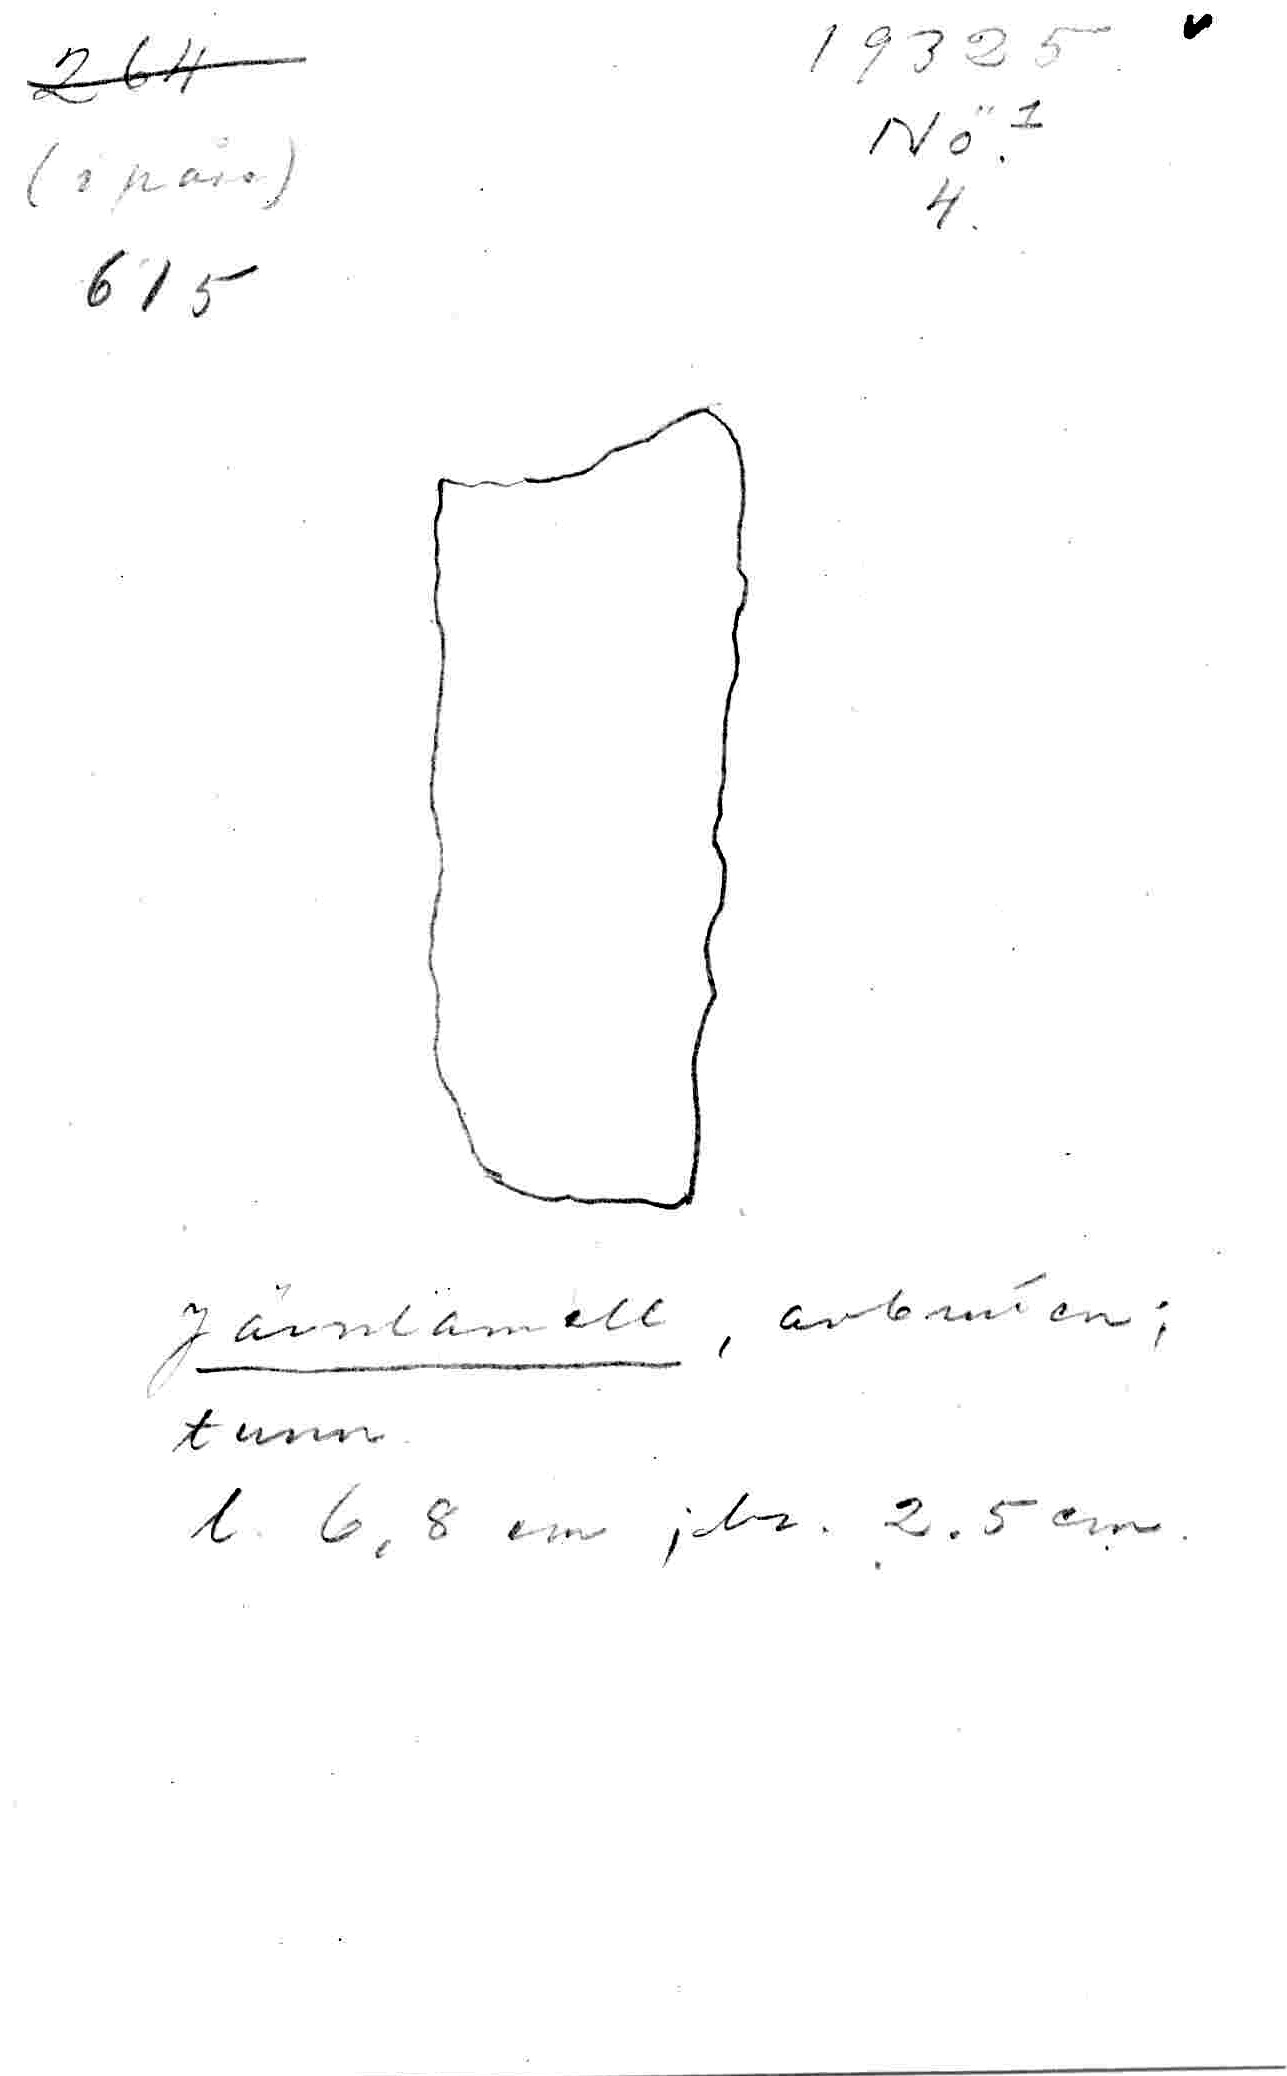 264
19325
Nö.1
(i påse)
4.
615
Järnlamell, avbruten;
tunn
l. 6,8 cm; br. 2.5 cm.